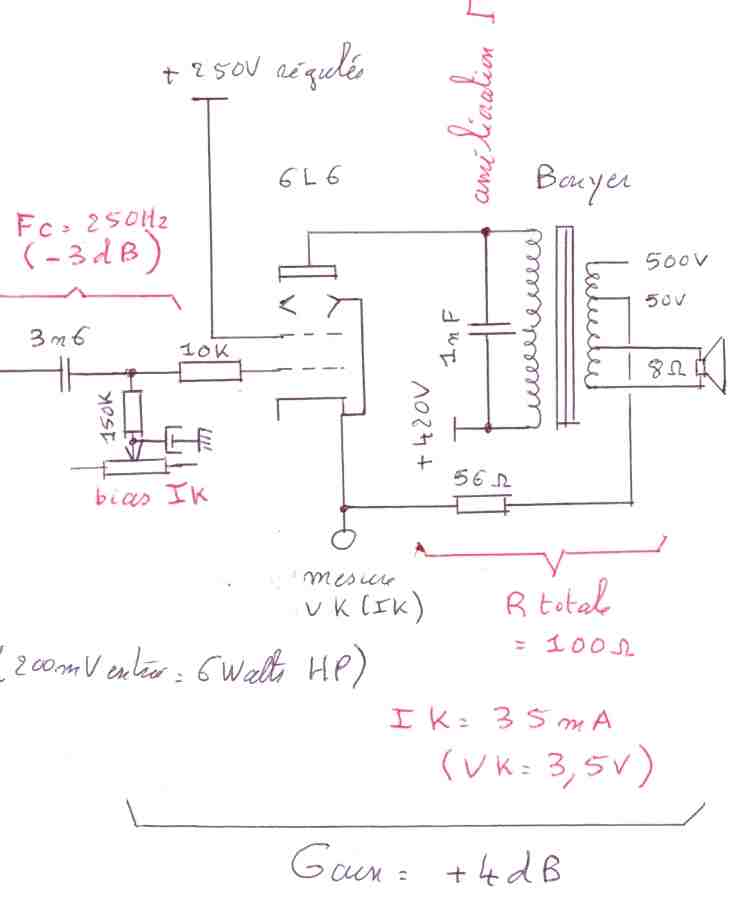 + 250V régulés
amélioration
6L6
Bouyer
Fc = 250Hz
(-3dB)
500V
50V
3n6
10K
1nF
8Ω
150K
+420V
56Ω
bias IK
mesure
VK (IK)
R totale
= 100Ω
(200mV entrée = 6Watts HP)
IK = 35mA
(VK = 3,5V)
Gain = +4dB